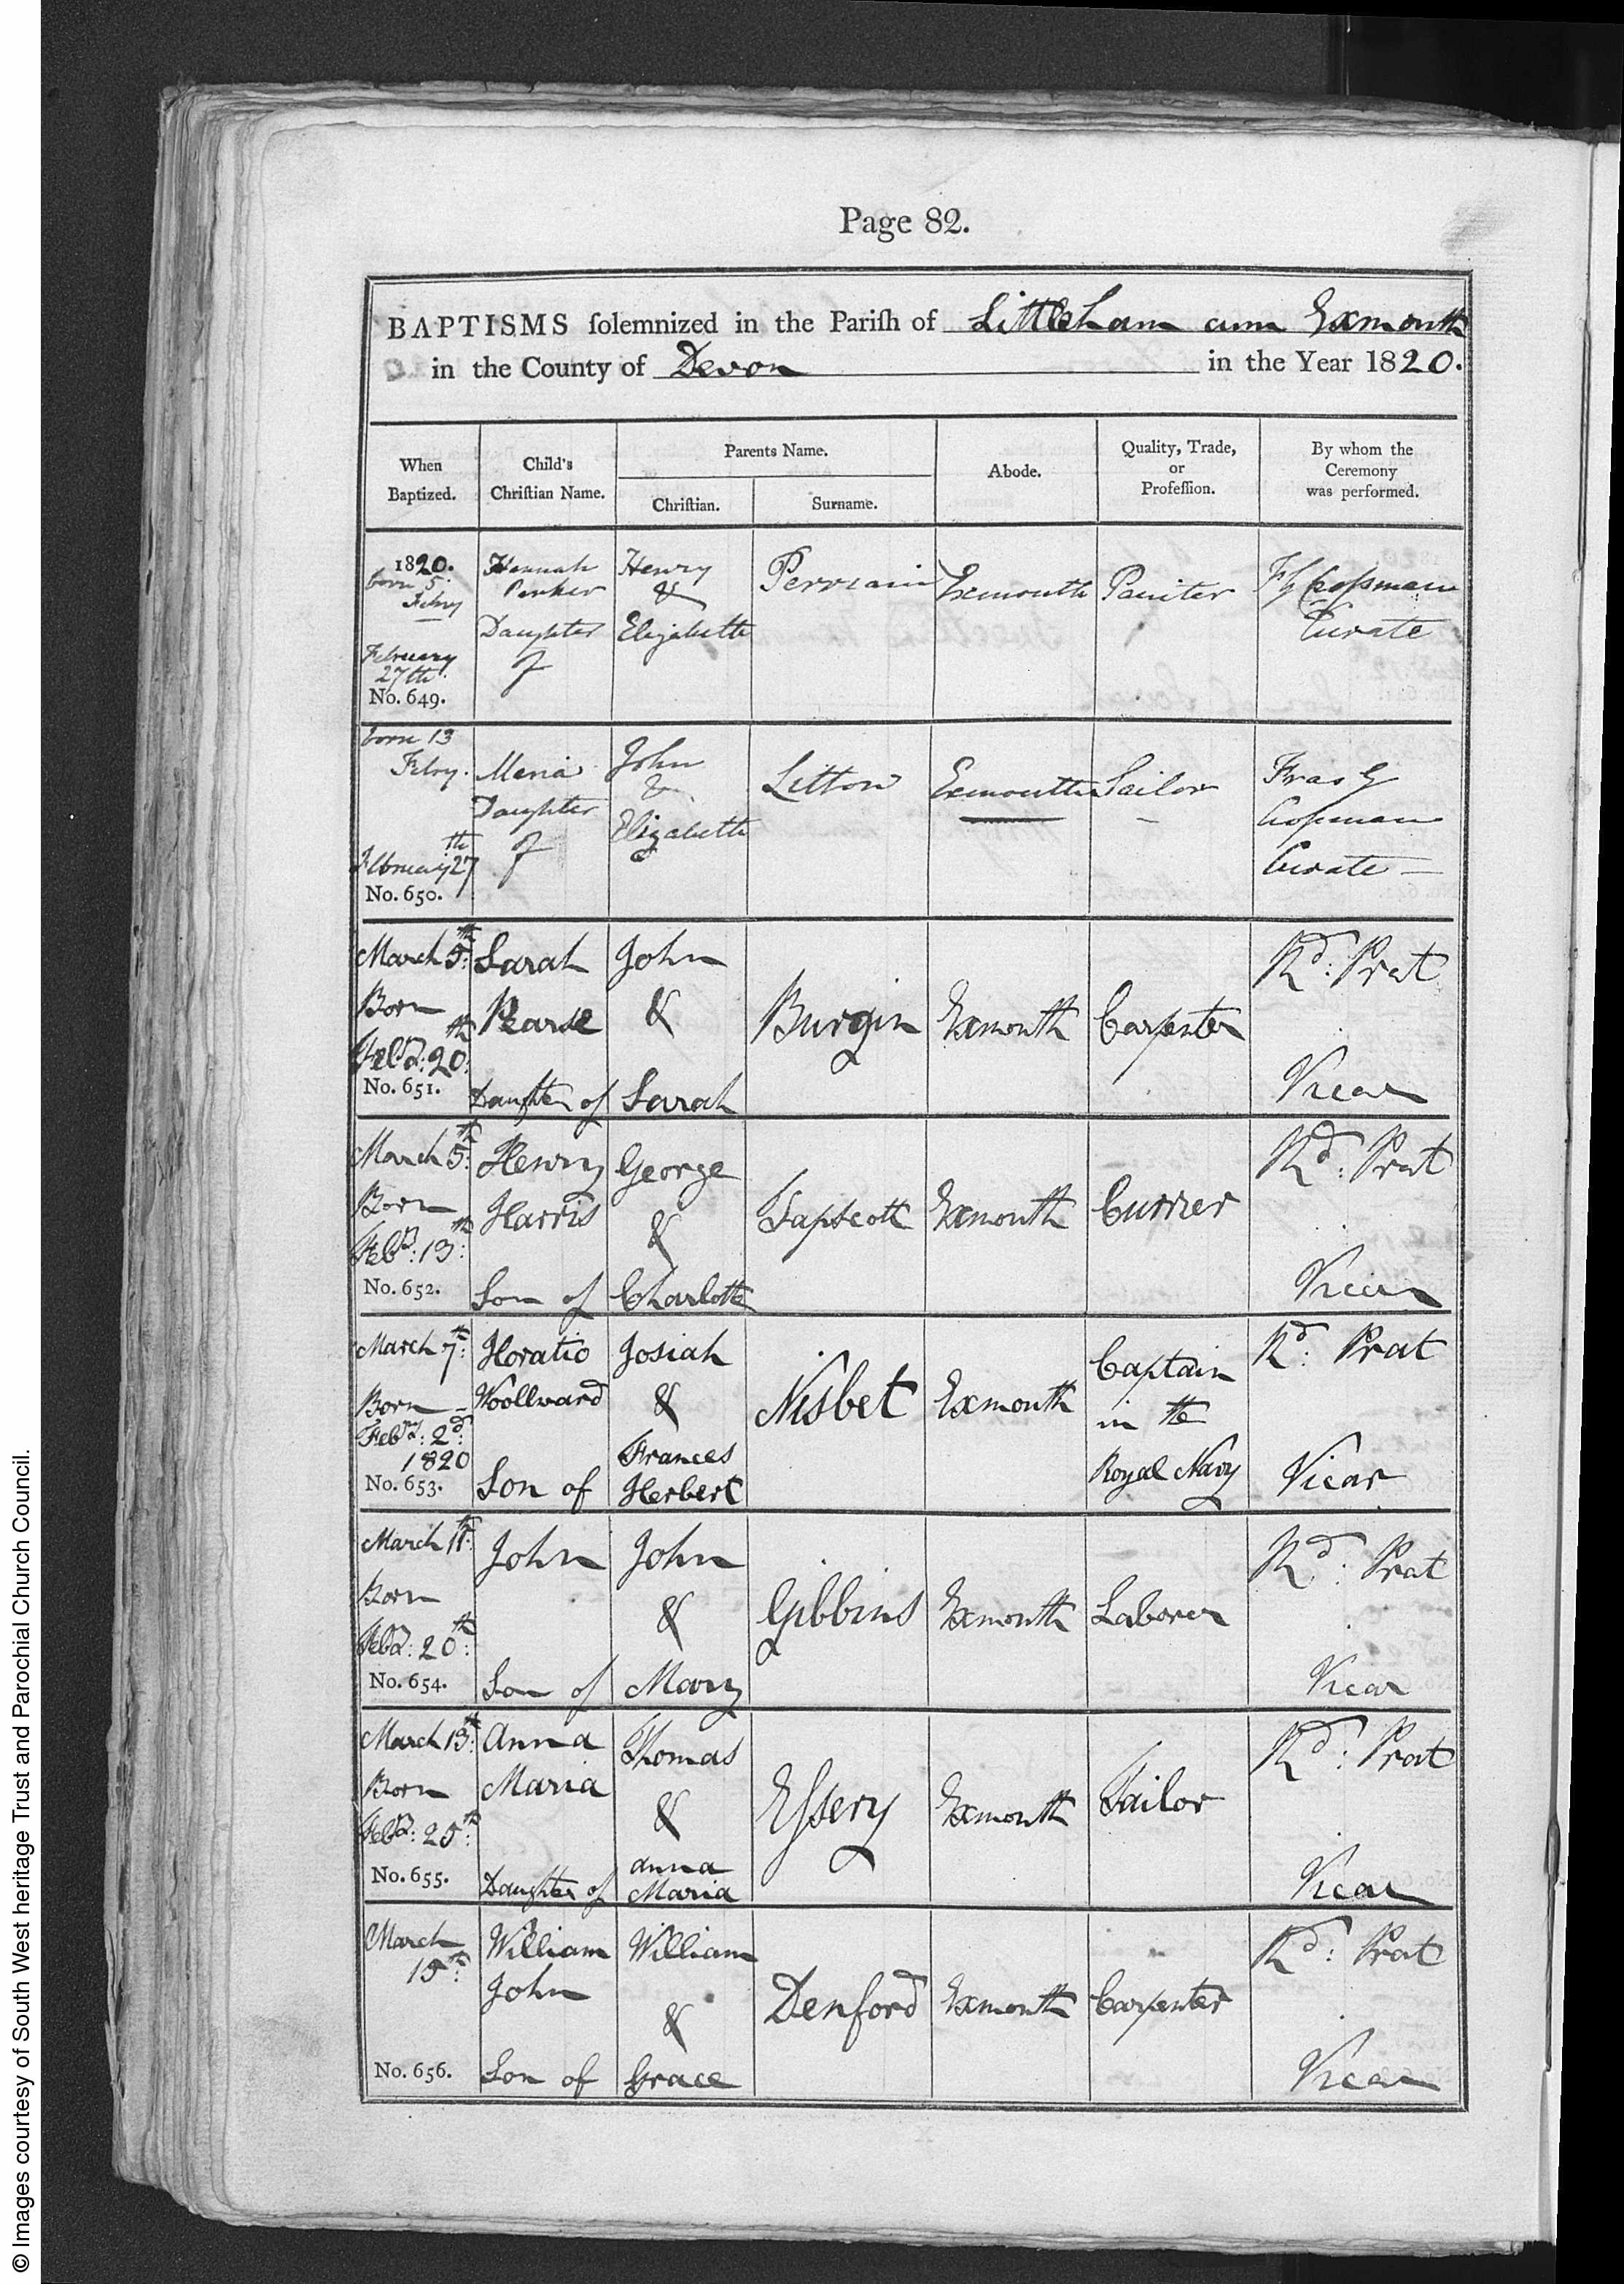 Page 82.
BAPTISMS solemnized in the Parish of Littleham cum Exmouth
in the County of Devon in the Year 1820.
When Baptized.
Child's Christian Name.
Parents Name.
Christian.
Surname.
Abode.
Quality, Trade, or Profession.
By whom the Ceremony was performed.
1820.
born 5
Febry
February
27th
No. 649.
Hannah
Parker
Daughter
of
Henry
&
Elizabeth
Perriam
Exmouth
Painter
Curate
born 13
Febry.
February 27th
No. 650.
Maria
Daughter
of
John
&
Elizabeth
Litton
Exmouth
Sailor
Fras G
Curate
March 5th:
Born
Febry: 20th:
No. 651.
Sarah
Pearse
Daughter of
John
&
Sarah
Burgin
Exmouth
Carpenter
Rd: Prat
Vicar
March 5th:
Born
Febry: 13th:
No. 652.
Henry
Harris
Son of
George
&
Charlotte
Tapscott
Exmouth
Currier
Rd: Prat
Vicar
March 7th:
Born
Febry: 2d:
1820
No. 653.
Horatio
Woollward
Son of
Josiah
&
Frances
Herbert
Nisbet
Exmouth
Captain
in the
Royal Navy
Rd: Prat
Vicar
March 11th:
Born
Febry: 20th:
No. 654.
John
Son of
John
&
Mary
Gibbins
Exmouth
Laborer
Rd: Prat
Vicar
March 13th:
Born
Febry: 25th:
No. 655.
Anna
Maria
Daughter of
Thomas
&
Anna
Maria
Essery
Exmouth
Tailor
Rd: Prat
Vicar
March
15th:
No. 656.
William
John
Son of
William
&
Grace
Denford
Exmouth
Carpenter
Rd: Prat
Vicar
© Images courtesy of South West heritage Trust and Parochial Church Council.